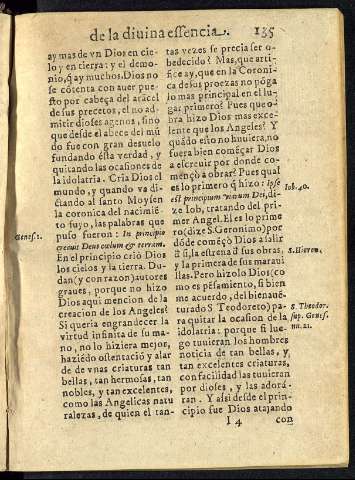 de la diuina essencia. 135
ay mas de vn Dios en cie-
lo y en tierra: y el demo-
nio, q̃ ay muchos. Dios no
se cõtenta con auer pue-
sto por cabeça del arãcel
de sus precetos, el no ad-
mitir dioses agenos, sino
que desde el abece del mũ
do fue con gran desuelo
fundando ésta verdad, y
quitando las ocasiones de
la idolatria. Cria Dios el
mundo, y quando va di-
ctando al santo Moysen
la coronica del nacimiẽ-
to suyo, las palabras que
puso fueron: In principio
creauit Deus cœlum & terram.
En el principio crió Dios
los cielos y la tierra. Du-
dan (y con razon) autores
graues, porque no hizo
Dios aqui mencion de la
creacion de los Angeles?
Si queria engrandecer la
virtud infinita de su ma-
no, no lo hiziera mejor,
haziẽdo ostentació y alar
de de vnas criaturas tan
bellas, tan hermosas, tan
nobles, y tan excelentes,
como las Angelicas natu
ralezas, de quien el tan-
Genes. 1.
tas vezes se precia ser o-
bedecido? Mas, que arti-
fice ay, que en la Coroni-
ca de sus proezas no põga
lo mas principal en el lu-
gar primero? Pues que o-
bra hizo Dios mas exce-
lente que los Angeles? Y
quãdo esto no huuiera, no
fuera bien començar Dios
a escreuir por donde co-
mẽço a obrar? Pues qual
es lo primero q̃ hizo: Ipse
est principium viarum Dei, di-
ze Iob, tratando del pri-
mer Angel. El es lo prime
ro (dize S. Geronimo) por
dóde comẽçó Dios a salir
d si, la estrena d sus obras,
y la primera de sus marauí
llas. Pero hizolo Dios (co
mo es pẽsamiento, si bien
me acuerdo, del bienauẽ-
turado S. Teodoreto) pa-
ra quitar la ocasion de la
idolatria: porque si lue-
go tuuieran los hombres
noticia de tan bellas, y
tan excelentes criaturas,
con facilidad las tuuieran
por dioses, y las adorá-
ran. Y assi desde el prin-
cipio fue Dios atajando
Iob. 40.
S. Hieron.
S. Theodor.
sup. Genes.
nu. 21.
I 4 con